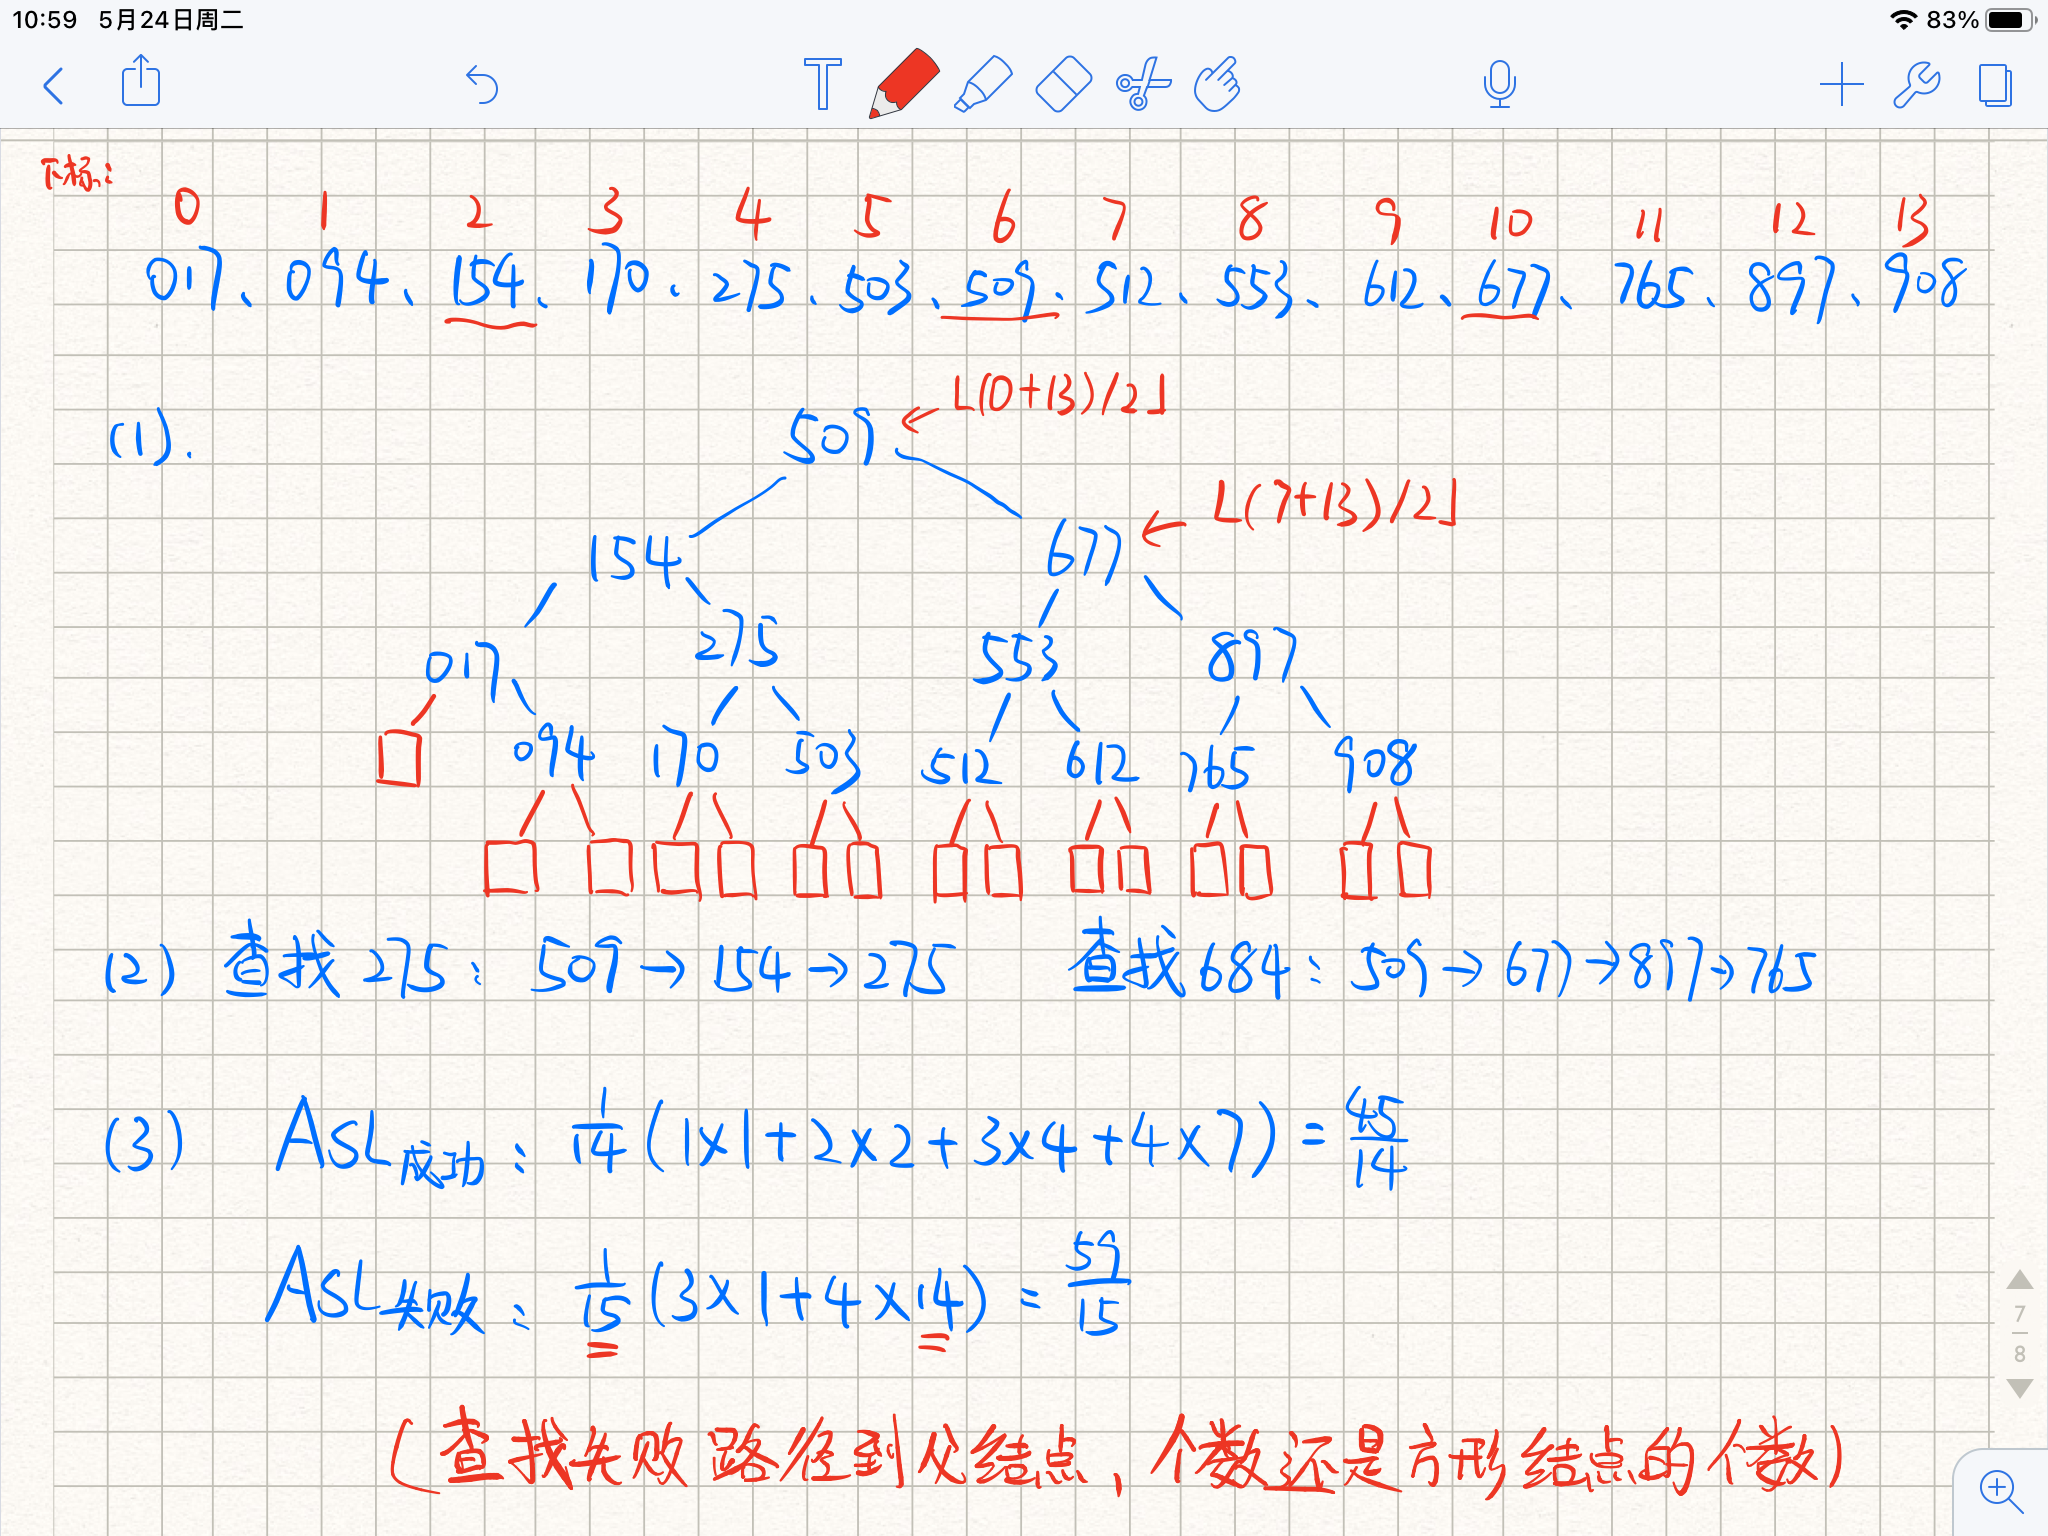 10:59 5月24日周二 83%
下标:
0 1 2 3 4 5 6 7 8 9 10 11 12 13
017、094、154、170、275、503、509、512、553、612、677、765、897、908
(1). 509 ← ⌊(0+13)/2⌋
154 677 ← ⌊(7+13)/2⌋
017 275 553 897
094 170 503 512 612 765 908
(2) 查找 275: 509→154→275 查找 684: 509→677→897→765
(3) ASL成功: 1/14 (1×1+2×2+3×4+4×7) = 45/14
ASL失败: 1/15 (3×1+4×14) = 59/15
(查找失败路径到父结点,个数还是方形结点的个数)
7
8